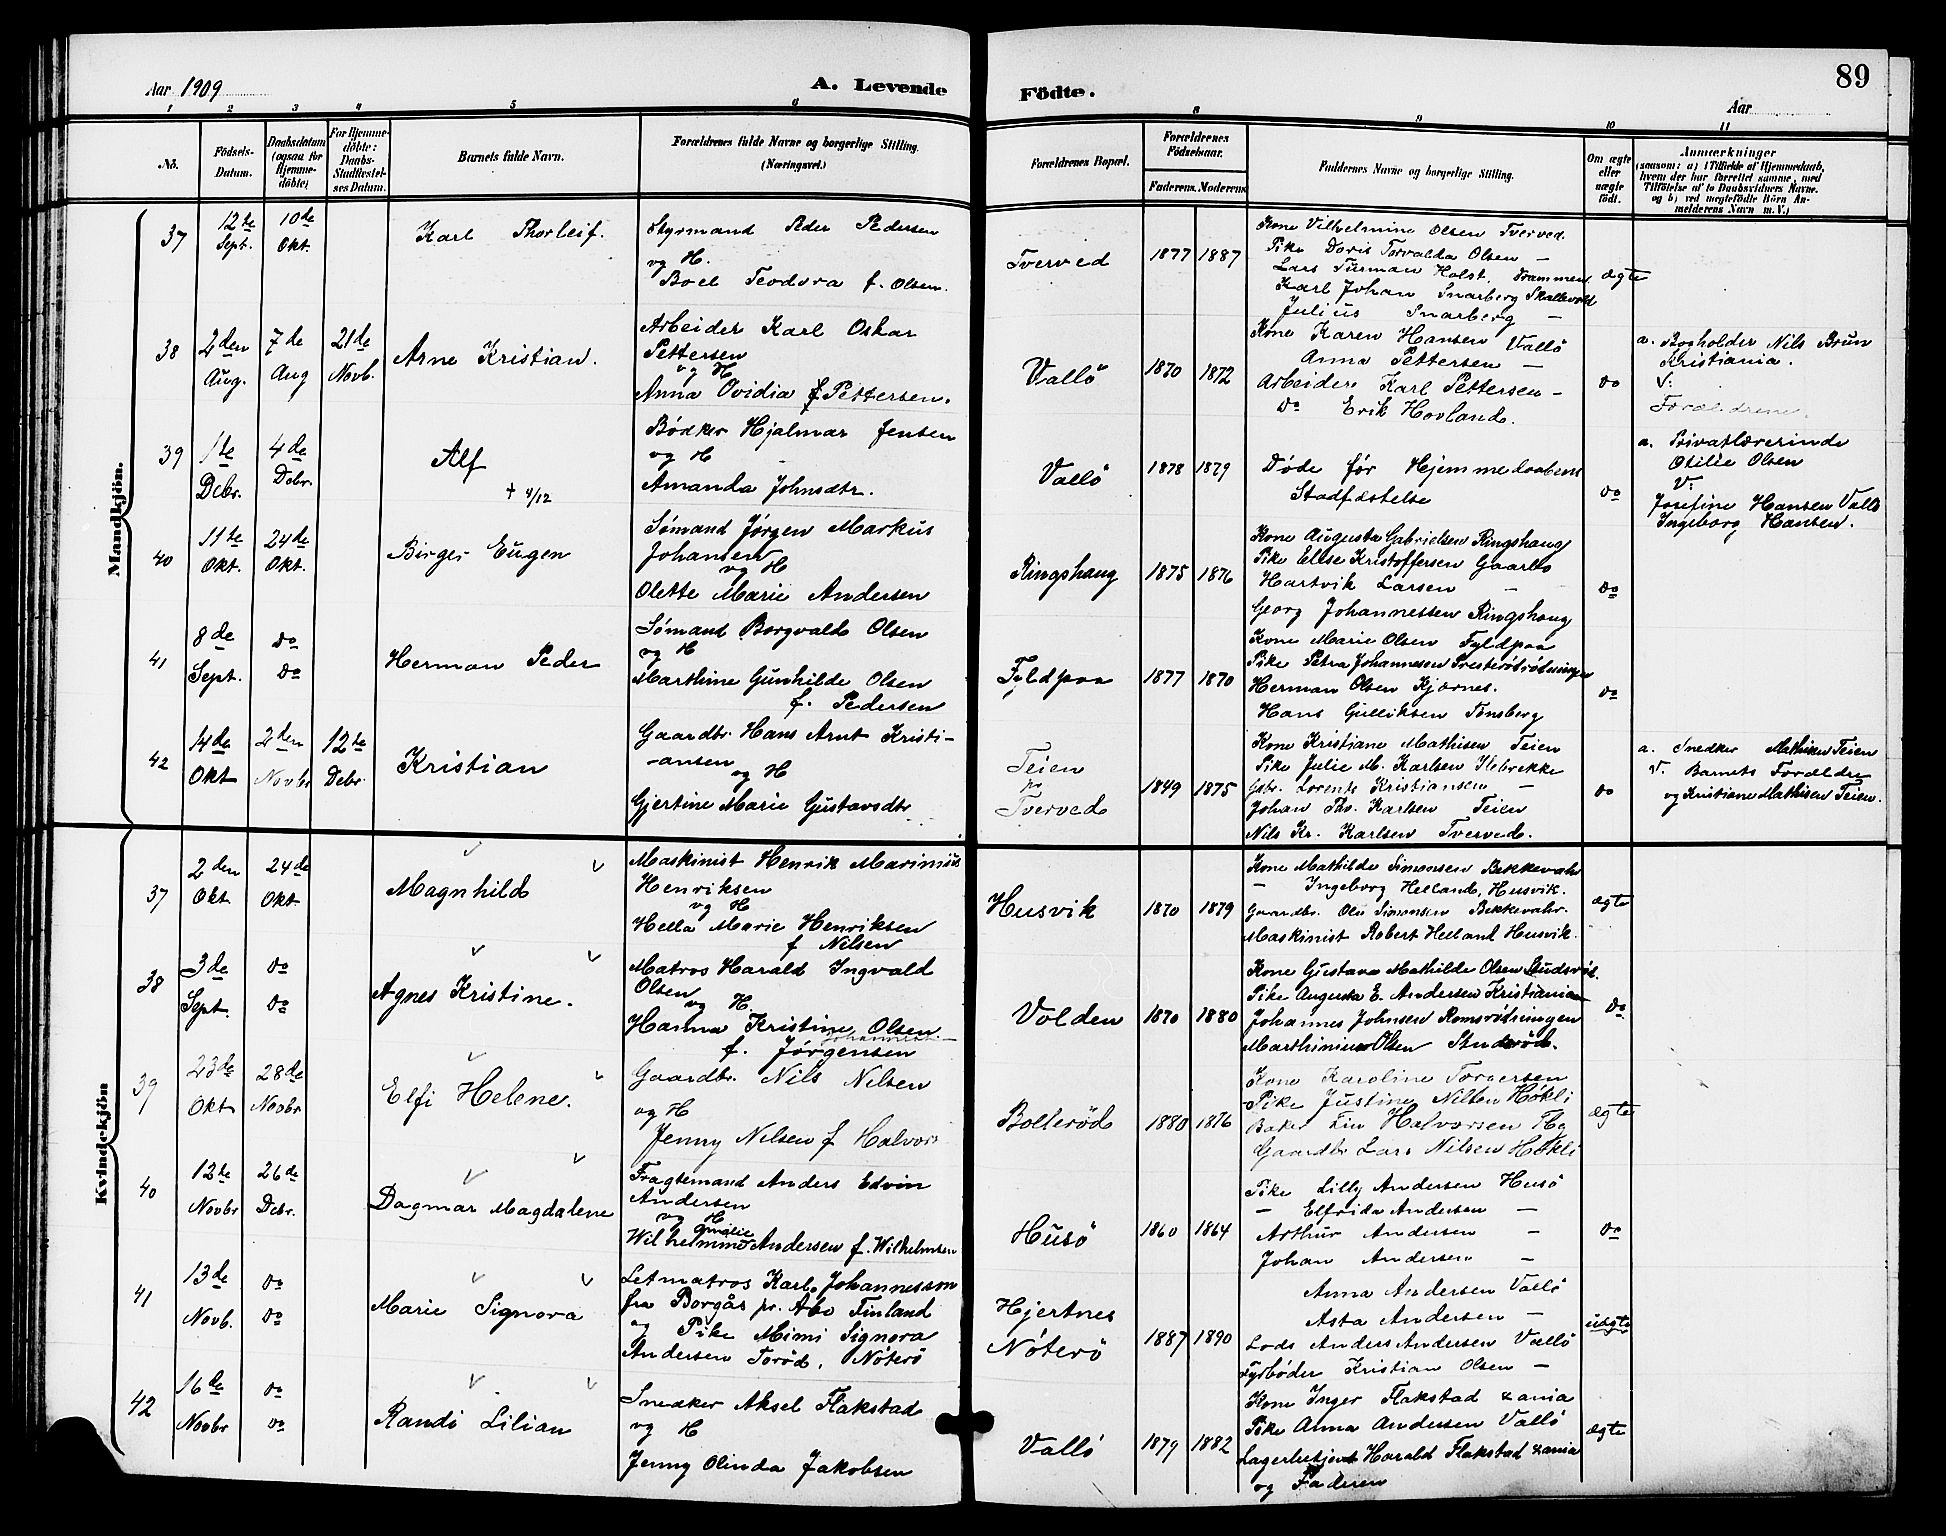 Aar 1909
A. Levende Födte.
89
Aar
1 2 3 4 5 6 8 9 10 11
No.
Födsels-Datum.
Daabsdatum (ogsaa for Hjemme-döbte)
For Hjemme-döbte: Daabs-Stadfæstel-ses Datum.
Barnets fulde Navn.
Forældrenes fulde Navne og borgerlige Stilling. (Næringsvei.)
Forældrenes Bopæl.
Forældrenes Födselsaar.
Faderens. Moderens.
Faddernes Navne og borgerlige Stilling.
Om ægte eller uægte födt.
Anmærkninger
Mandkjön.
37
12te Sept.
10de Okt.
Karl Thorleif.
Styrmand Peder Pedersen
og H.
Boel Teodora f. Olsen.
Tverved
1877 1887
Kone Vilhelmine Olsen Tverved.
Pike Doris Torvalda Olsen —
Lars Furman Holst. Drammen
Karl Johan Snarberg Skallevold
Julius Snarberg —
ægte
38
2den Aug.
7de Aug
21de Novb.
Arne Kristian.
Arbeider Karl Oskar
Pettersen
og H
Anna Ovidia f Pettersen.
Vallö
1870 1872
Kone Karen Hansen Vallö
Anna Pettersen —
Arbeider Karl Pettersen —
Do Erik Hovland.
do
a. Bogholder Nils Brun
Kristiania.
V:
Forældrene.
39
1te Debr.
4de Debr.
Alf
+ 4/12
Bødker Hjalmar Jensen
og H
Amanda Johnsdtr.
Vallö
1878 1879
Døde før Hjemmedaabens
Stadfæstelse
do
a. Privatlærerinde
Otilie Olsen
V:
Josefine Hansen Vallö
Ingeborg Hansen.
40
11te Okt.
24de Okt.
Birger Eugen
Sømand Jørgen Markus
Johansen
og H
Olette Marie Andersen
Ringshaug
1875 1876
Kone Augusta Gabrielsen Ringshaug
Pike Elise Kristoffersen Gaarbo
Hartvik Larsen —
Georg Johannessen Ringshaug
do
41
8de Sept.
do do
Herman Peder
Sømand Borgvald Olsen
og H
Marthine Gunhilde Olsen
f. Pedersen
Fyldpaa
1877 1870
Kone Marie Olsen Fyldpaa
Pike Petra Johannesen Presterödrödningen
Herman Olsen Kjærnes.
Hans Gulliksen Tønsberg
do
42
14de Okt
2den Novbr
12te Debr.
Kristian
Gaardbr. Hans Arnt Kristi-
-ansen
og H
Gjertine Marie Gustavsdtr.
Teien
Tverved
1849 1875
Kone Kristiane Mathisen Teien
Pike Julie M. Karlsen Ilebrekke
Gbr. Lorents Kristiansen —
Johan Th. Karlsen Teien
Nils Kr. Karlsen Tverved.
do
a. Snedker Mathisen Teien
V. Barnets Forældre
og Kristiane Mathisen Teien.
Kvindekjön
37
2den Okt
24de Okt.
Magnhild
Maskinist Henrik Marinius
Henriksen
og H
Hella Marie Henriksen
f Nilsen
Husvik
1870 1879
Kone Mathilde Simonsen Bekkevahr
— Ingeborg Helland, Husvik.
Gaardbr. Ole Simonsen Bekkevahr.
Maskinist Robert Helland Husvik.
ægte
38
3de Sept.
do do
Agnes Kristine.
Matros Harald Ingvald
Olsen
og H.
Hanna Kristine Olsen
f. Jørgensen
Volden
1870 1880
Kone Gustava Mathilde Olsen
Pike Augusta E. Andersen Kristiania
Johannes Johnsen Romsrödningen
Marthinius Olsen
do
39
23de Okt
28de Novbr
Elfi Helene.
Gaardbr. Nils Nilsen
og H
Jenny Nilsen f Halvors
Bolleröd
1880 1876
Kone Karoline Torgersen
Pike Justine Nilsen Høkli
Baker Halvorsen Tbg
Gaardbr Lars Nilsen Høkli
ægte
40
12te Novbr
26de Debr.
Dagmar Magdalene
Fragtemand Anders Edvin
Andersen
og H
Wilhelmine Amalie Andersen f. Wilhelmsen
Husö
1860 1864
Pike Lilly Andersen Husö
— Elfrida Andersen —
Arthur Andersen —
Johan Andersen —
do
41
13de Novb.
do do
Marie Signora
Letmatros Karl Johannesson
fra Borgås pr. Abo Finland
og Pike Mimi Signora
Andersen Toröd, Nöterö
Hjertnes
Nöterö
1887 1890
Anna Andersen Vallö
Asta Andersen —
Lods Anders Andersen Vallö
Fyrbøder Kristian Olsen —
uægte
42
16de Novbr
do do
Randi Lilian
Snedker Aksel Flakstad
og H
Jenny Olinda Jakobsen
Vallö
1879 1882
Kone Inger Flakstad Xania
Pike Anna Andersen Vallö
Lagerbetjent Harald Flakstad Xania
og Faderen
ægte